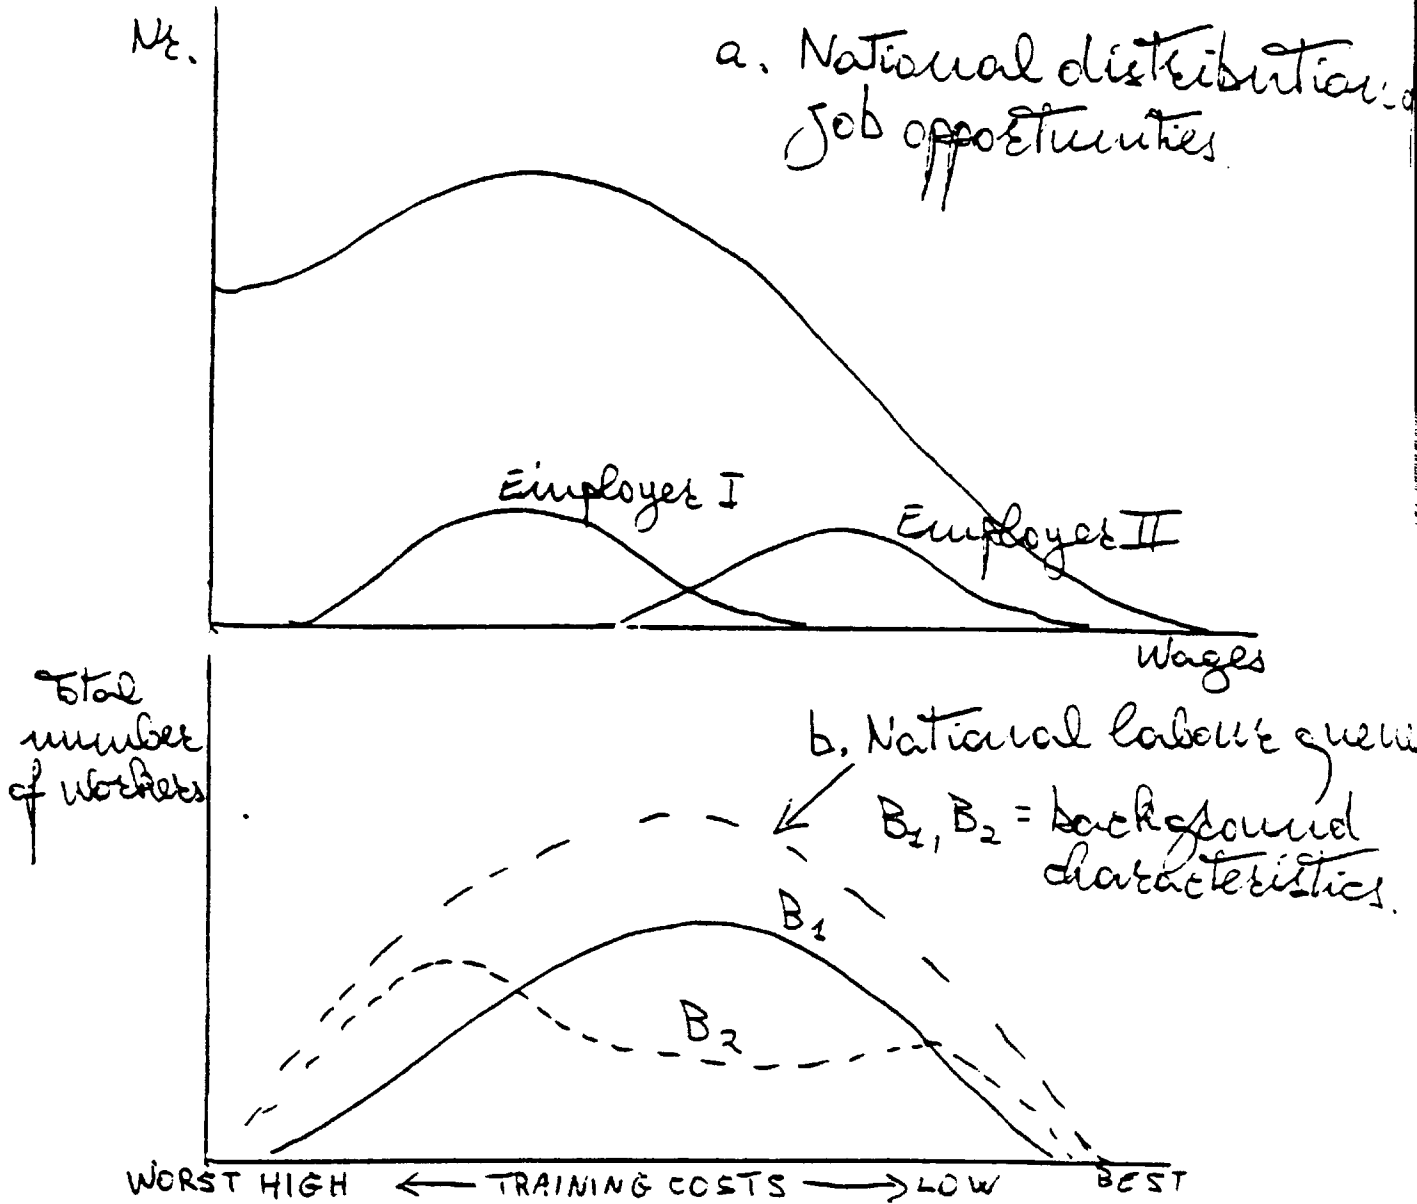 Nr.
a. National distribution
job opportunities
Employer I
Employer II
Wages
Total
number
of workers
b. National labour
B1, B2 = background
characteristics.
B1
B2
WORST HIGH ← TRAINING COSTS → LOW BEST